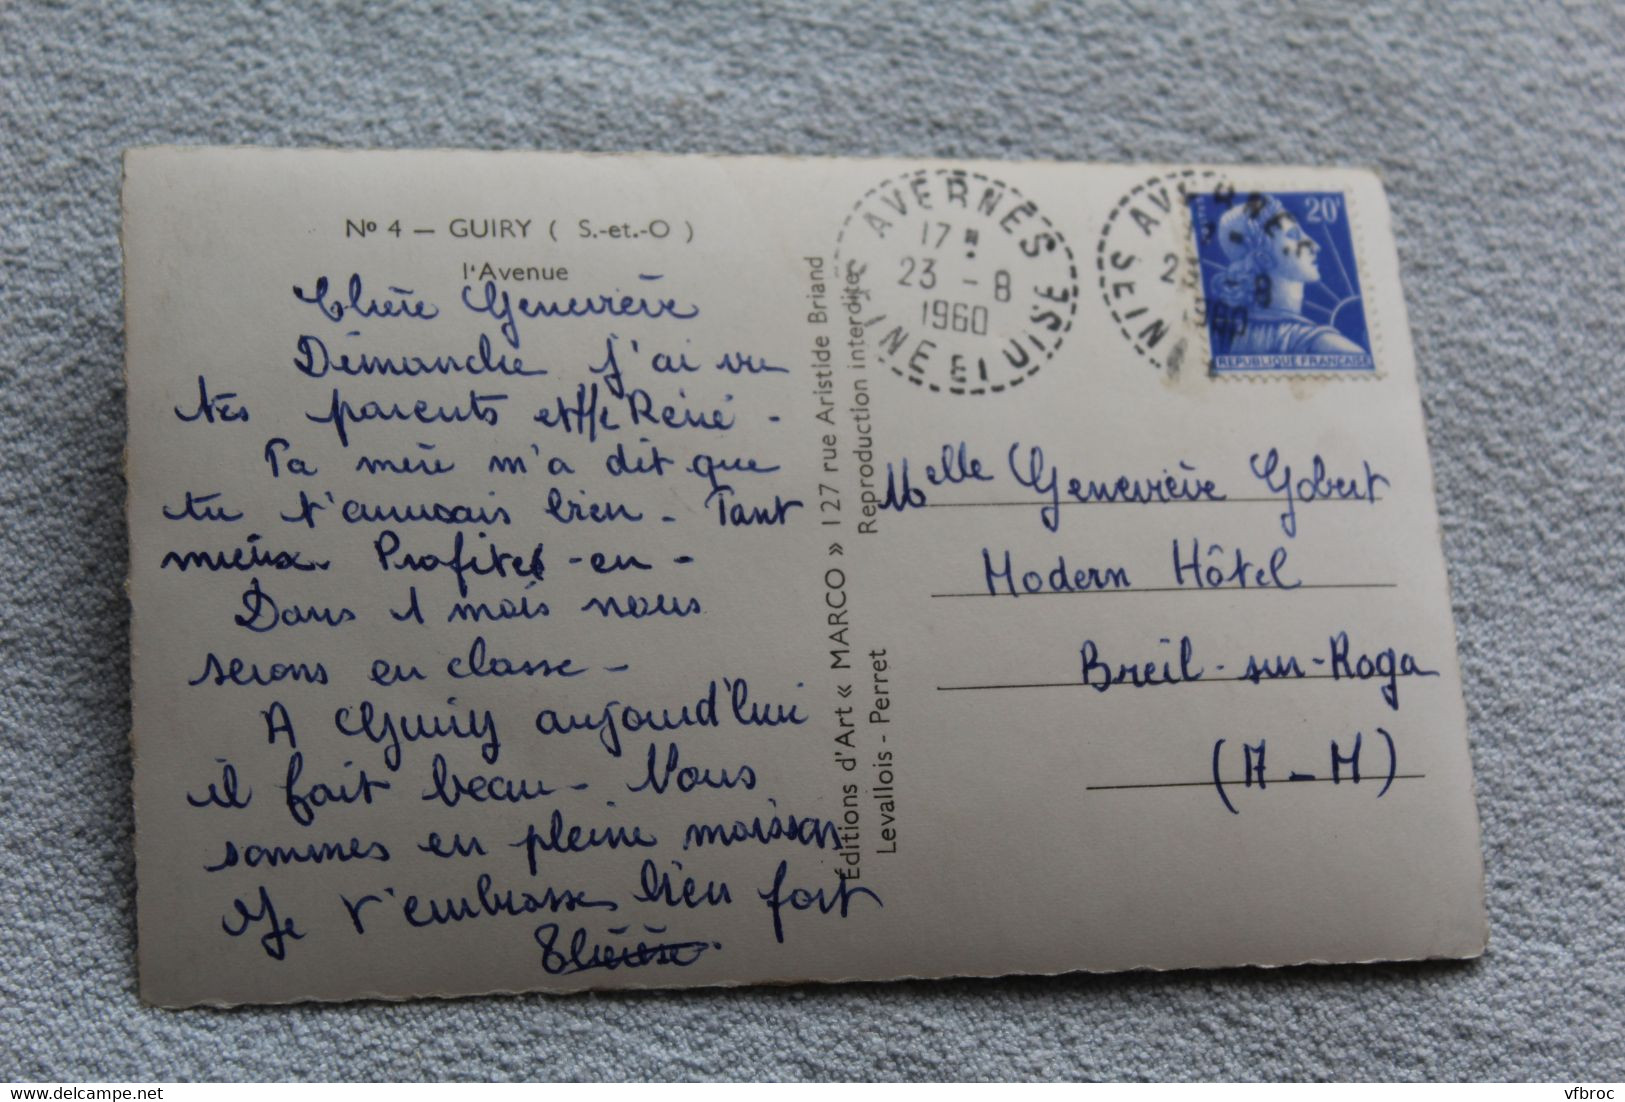 Nº 4 — GUIRY ( S.-et.-O )
l'Avenue
Chère Geneviève
Dimanche j'ai vu
tes parents et Mr René -
Ta mère m'a dit que
tu t'amusais bien - Tant
mieux. Profites-en -
Dans 1 mois nous
serons en classe -
A Guiry aujourd'hui
il fait beau - Nous
sommes en pleine moisson
Je t'embrasse bien fort
Thérèse.
Éditions d'Art « MARCO » 127 rue Aristide Briand
Levallois - Perret Reproduction interdite
AVERNES
17 H
23 - 8
1960
SEINE ET OISE
AVERNES
2 - 8
1960
SEINE
20F
REPUBLIQUE FRANÇAISE
Melle Geneviève Gobert
Modern Hôtel
Breil-sur-Roya
(A-M)
vfbroc